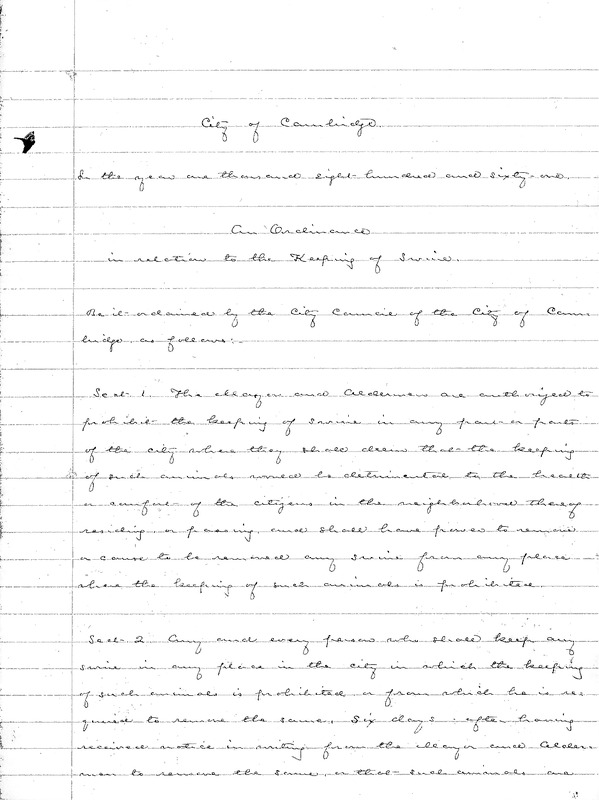 City of Cambridge.
In the year one thousand eight hundred and sixty-one.
An Ordinance
in relation to the Keeping of Swine.
Be it ordained by the City Council of the City of Cam
bridge, as follows:-
Sect. 1. The Mayor and Aldermen are authorized to
prohibit the keeping of swine in any part or parts
of the city where they shall deem that the keeping
of such animals would be detrimental to the health
or comfort of the citizens in the neighborhood thereof
residing, or passing, and shall have power to remove
or cause to be removed any swine from any place
where the keeping of such animals is prohibited.
Sect. 2. Any and every person who shall keep any
swine in any place in the city in which the keeping
of such animals is prohibited, or from which he is re-
quired to remove the same, six days after having
received notice in writing from the Mayor and Alder-
men to remove the same, or that such animals are